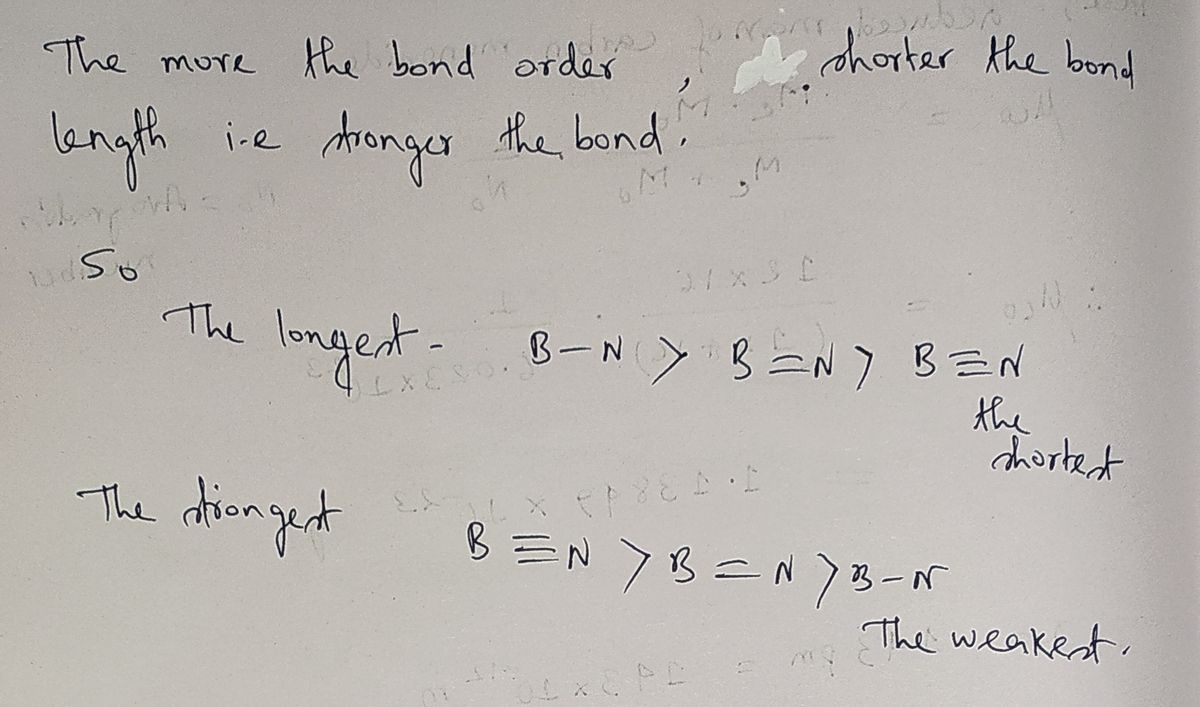 The more the bond order , shorter the bond
length i-e stronger the bond.
So
The longest - B-N > B=N > B≡N
the
shortest
The strongest B≡N > B=N > B-N
The weakest.